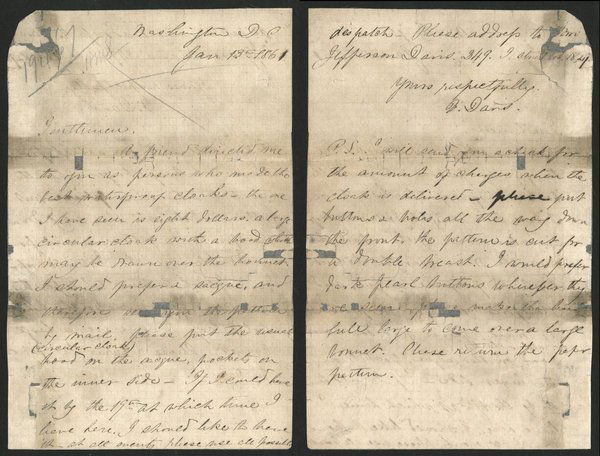 Washington D. C.
Jan 13th 1861
Gentlemen,
A friend directed me
to you as persons who made the
best waterproof cloaks - the one
I have seen is eight dollars, a large
circular cloak with a hood which
may be drawn over the bonnet.
I should prefer a sacque, and
therefore send you the pattern
by mail, please put the usual
(circular cloak)
hood on the sacque, pockets on
the inner side - If I could have
it by the 19th at which time I
leave here, I should like to have
it - at all events, please use all possible
despatch Please address to Mrs
Jefferson Davis. 249. I street
Yours respectfully
J. Davis.
P.S. I will send you a check for
the amount of charges when the
cloak is delivered - please put
buttons & holes all the way down
the front, the pattern is cut for
a double breast. I would prefer
dark pearl buttons wherever they
are seen make the hood
full large to come over a large
bonnet. Please return the paper
pattern.